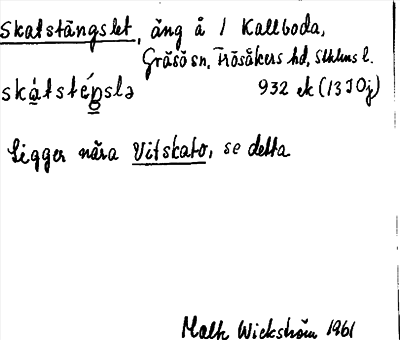 Skatstängslet, äng å 1 Kallboda,
Gräsö sn, Frösåkers hd, Sthlms l.
skátstéŋslə 932 ek (13I0j)
Ligger nära Vitskato, se detta
Wickström 1961